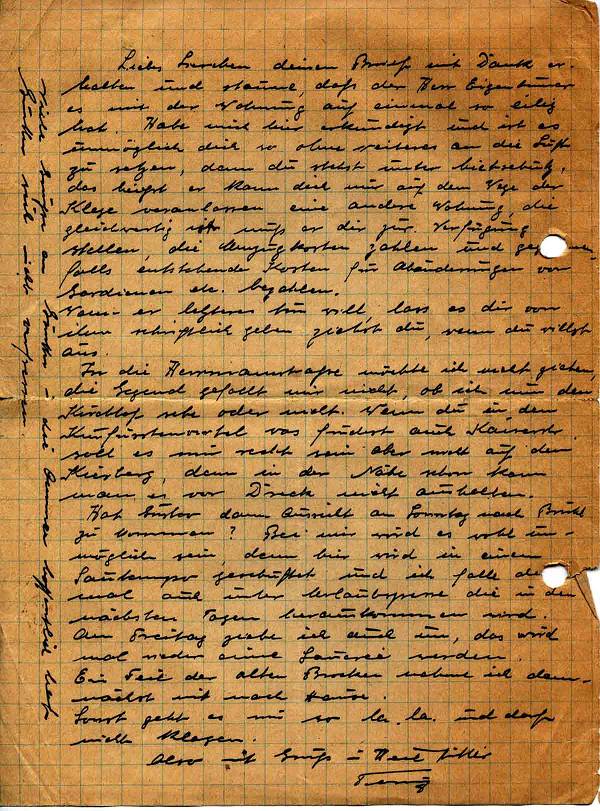 Liebes Lenchen deinen Brief mit Dank er-
halten und staune, daß der Herr Eigentümer
es mit der Wohnung auf einmal so eilig
hat. Habe mich hier erkundigt und ist es
unmöglich dich so ohne weiteres an die Luft
zu setzen, denn du stehst unter Mietschutz,
das heißt er kann dich nur auf dem Wege der
Klage veranlassen eine andere Wohnung, die
gleichwertig ist muß er dir zur Verfügung
stellen, die Umzugkosten zahlen und
falls entstehende Kosten für Abänderungen von
Gardienen etc. bezahlen.
Wenn er letzteres tun will, lass es dir von
ihm schriftlich geben ziehst du, wenn du willst
aus.
In die Herrmannstraße möchte ich nicht ziehen,
die Gegend gefällt mir nicht, ob ich nun den
Kirchhof sehe oder nicht. Wenn du in dem
Kurfürstenviertel was findest auch Kaiserstr.
soll es mir recht sein aber nicht auf dem
Kierberg, denn in der Nähe schon kann
man es vor Dreck nicht aushalten.
Hat Günter dann Aussicht am Sonntag nach Brühl
zu kommen? Bei mir wird es wohl un-
möglich sein, denn hier wird in einem
Sautempo geschuftet und ich falle
mal auch unter Urlaubsperre die in den
nächsten Tagen herauskommen wird.
Am Freitag ziehe ich auch um, das wird
mal wieder eine Sauerei werden.
Ein Teil der alten Brocken nehme ich dem-
nächst mit nach Hause.
Sonst geht es mir so la. la. und darf
nicht klagen.
Also mit Gruß u Heil Hitler
Viele Grüße an Günter u. die hoffentlich hat
Günter mich nicht vergessen.